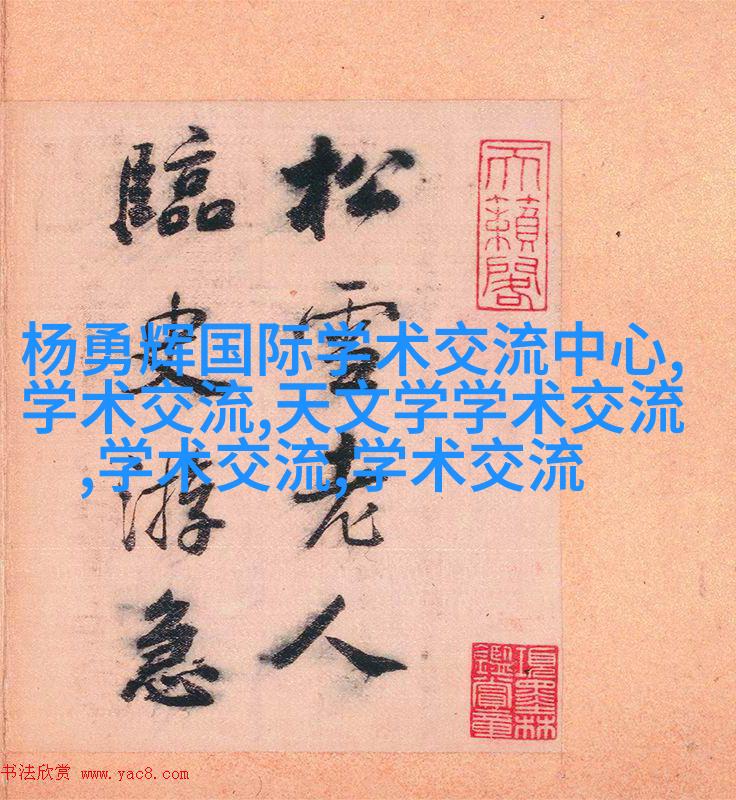 松雪老人
臨史游急
天籟閣
項墨林
鑑賞章
杨勇辉国际学术交流中心,
学术交流,天文学学术交流
,学术交流,学术交流
书法欣赏 www.yac8.com